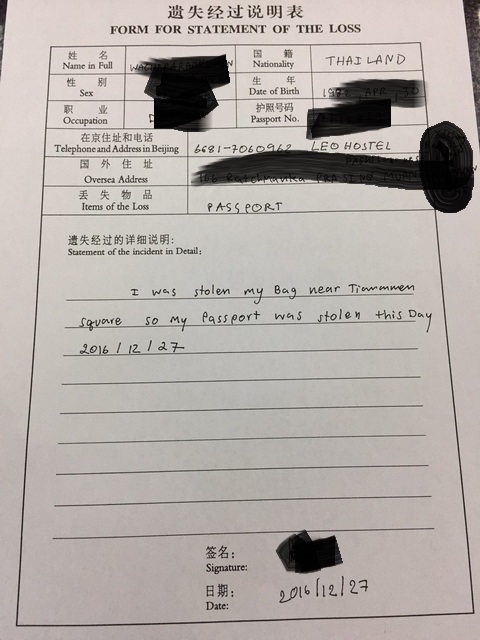 遗失经过说明表
FORM FOR STATEMENT OF THE LOSS
姓 名
Name in Full
国 籍
Nationality
THAILAND
性 别
Sex
生 年
Date of Birth
职 业
Occupation
护照号码
Passport No.
在京住址和电话
Telephone and Address in Beijing
6681-7060962 LEO HOSTEL
国 外 住 址
Oversea Address
丢 失 物 品
Items of the Loss
PASSPORT
遗失经过的详细说明:
Statement of the incident in Detail:
I was stolen my Bag near Tianmmen
square so my Passport was stolen this Day
2016/12/27
签名:
Signature:
日期:
Date:
2016/12/27